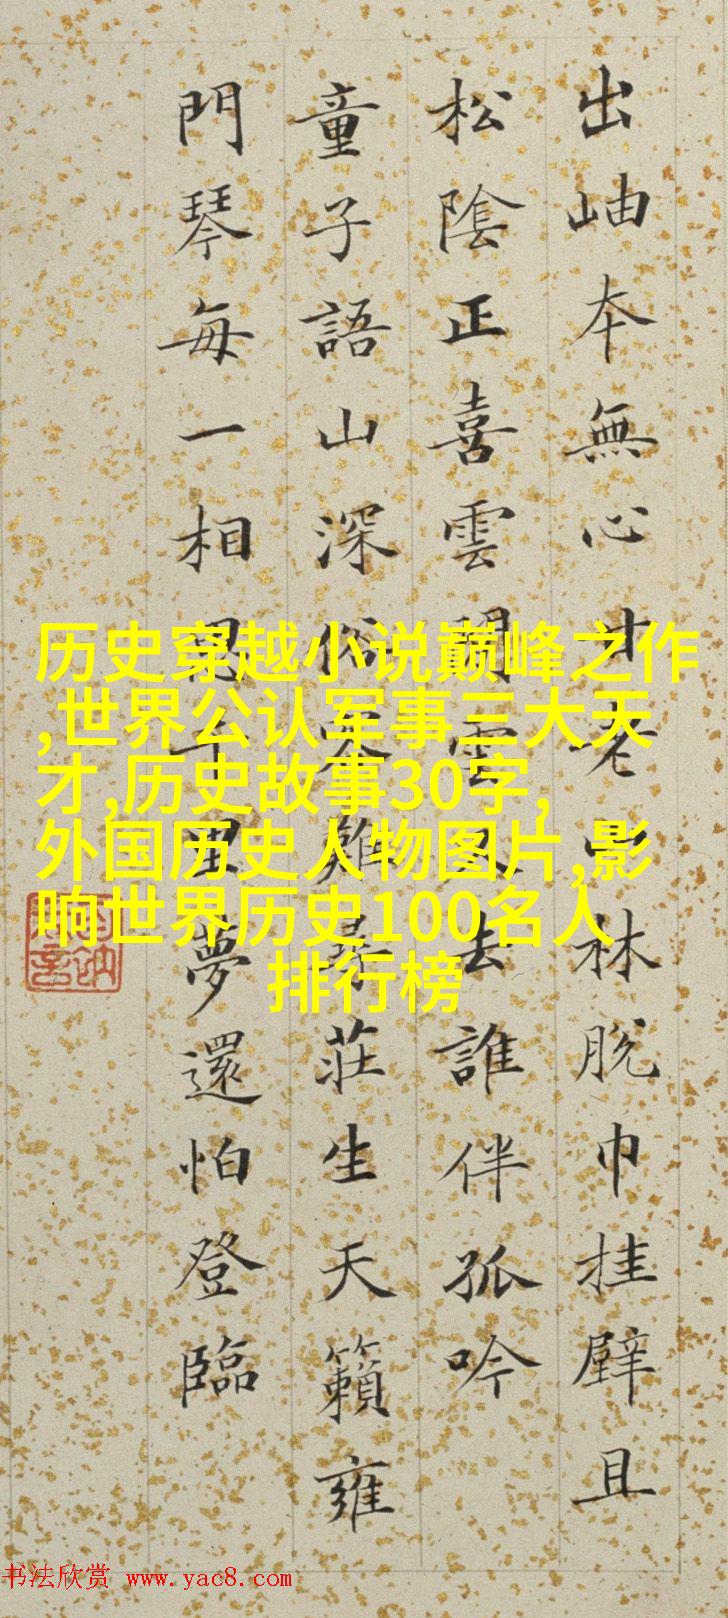 出岫本無心甘老山林脫巾挂壁且
松陰正喜雲閒雲又去誰伴孤吟
童子語山深俗客難尋莊生天籟雍
門琴每一相思千里夢還怕登臨
历史穿越小说巅峰之作
,世界公认军事三大天
才,历史故事30字,
外国历史人物图片,影
响世界历史100名人
排行榜
书法欣赏 www.yac8.com